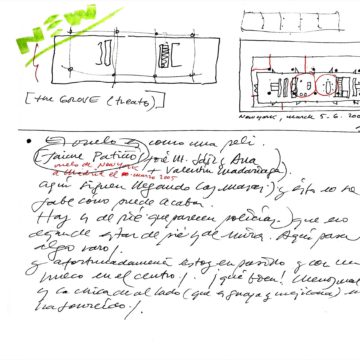 NEW
[the GROVE (treato)]
New York, march 5.6.200
• El vuelo es como una peli.
(Jaime Patiño, José M. Sáiz y Ana
vuelo de New York
a Madrid el 10. marzo 2005
+ Valentín Madariaga
aquí siguen llegando y esto no se
sabe como puede acabar.
Hay 4 de pie que parecen policías, que no
dejan de estar de pie y de mirar. Aquí pasa
algo raro!
y afortunadamente estoy en pasillo y con un
hueco en el centro!. ¡qué bien! menos mal
y la chica de al lado (que es guapa y mejicana) me
ha sonreído!